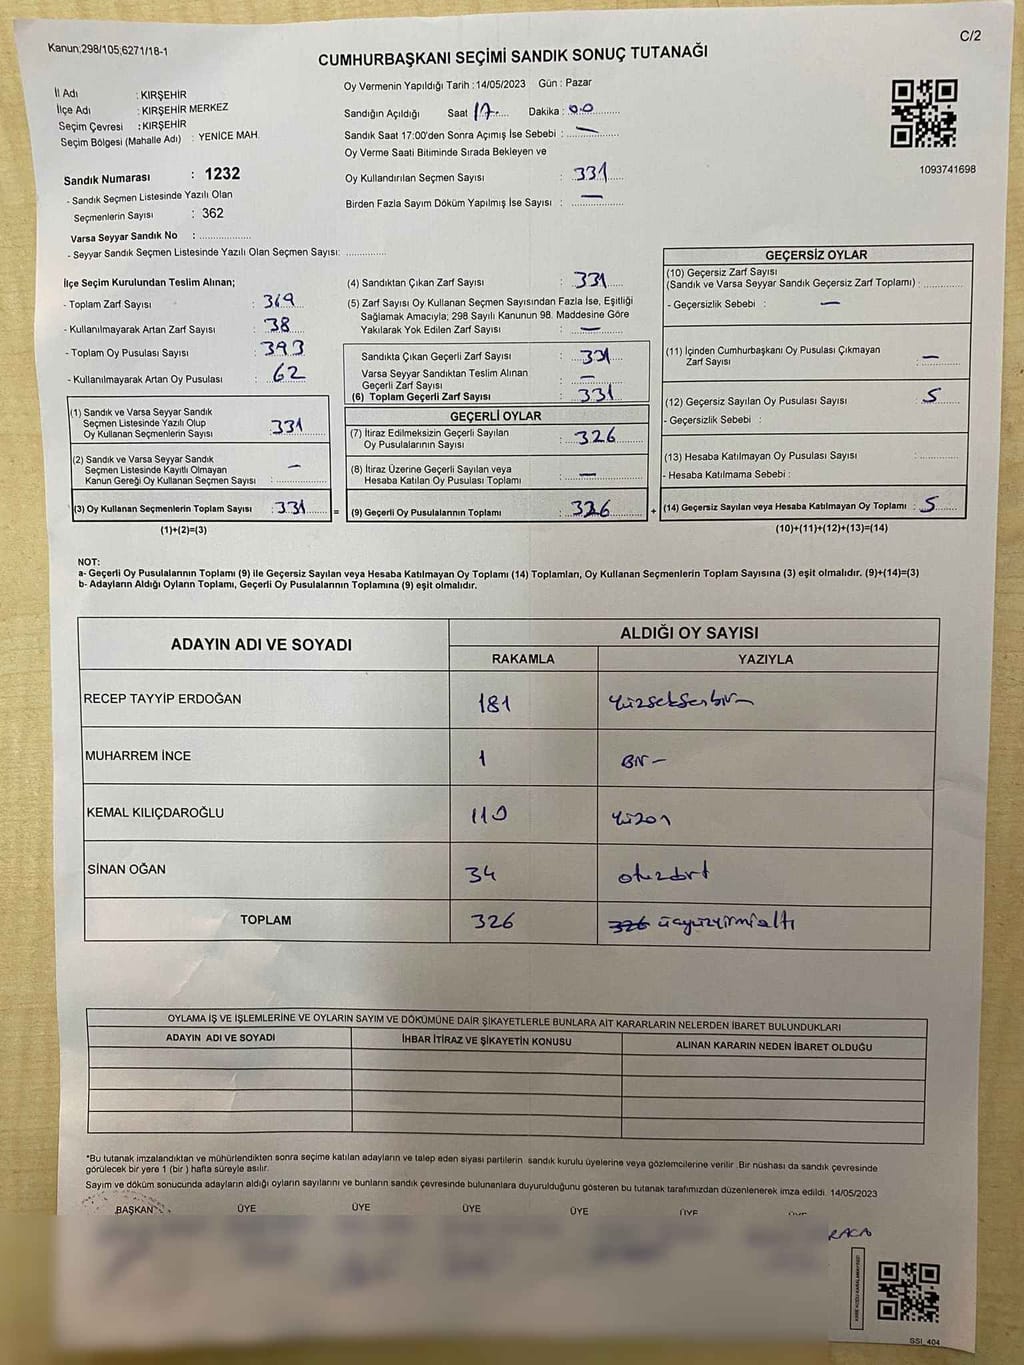 Kanun;298/105,6271/18-1
C/2
CUMHURBAŞKANI SEÇİMİ SANDIK SONUÇ TUTANAĞI
İl Adı : KIRŞEHİR
İlçe Adı : KIRŞEHİR MERKEZ
Seçim Çevresi : KIRŞEHİR
Seçim Bölgesi (Mahalle Adı) : YENİCE MAH.
Sandık Numarası : 1232
- Sandık Seçmen Listesinde Yazılı Olan
Seçmenlerin Sayısı : 362
Varsa Seyyar Sandık No : ..............
- Seyyar Sandık Seçmen Listesinde Yazılı Olan Seçmen Sayısı: ............
Oy Vermenin Yapıldığı Tarih : 14/05/2023 Gün : Pazar
Sandığın Açıldığı Saat 17.... Dakika : 00
Sandık Saat 17:00'den Sonra Açımış İse Sebebi : —
Oy Verme Saati Bitiminde Sırada Bekleyen ve
Oy Kullandırılan Seçmen Sayısı : 331
Birden Fazla Sayım Döküm Yapılmış İse Sayısı : —
1093741698
İlçe Seçim Kurulundan Teslim Alınan;
- Toplam Zarf Sayısı : 369
- Kullanılmayarak Artan Zarf Sayısı : 38
- Toplam Oy Pusulası Sayısı : 393
- Kullanılmayarak Artan Oy Pusulası : 62
(1) Sandık ve Varsa Seyyar Sandık
Seçmen Listesinde Yazılı Olup
Oy Kullanan Seçmenlerin Sayısı : 331
(2) Sandık ve Varsa Seyyar Sandık
Seçmen Listesinde Kayıtlı Olmayan
Kanun Gereği Oy Kullanan Seçmen Sayısı : —
(3) Oy Kullanan Seçmenlerin Toplam Sayısı : 331
(1)+(2)=(3)
=
(4) Sandıktan Çıkan Zarf Sayısı : 331
(5) Zarf Sayısı Oy Kullanan Seçmen Sayısından Fazla İse, Eşitliği
Sağlamak Amacıyla; 298 Sayılı Kanunun 98. Maddesine Göre
Yakılarak Yok Edilen Zarf Sayısı : —
Sandıkta Çıkan Geçerli Zarf Sayısı : 331
Varsa Seyyar Sandıktan Teslim Alınan
Geçerli Zarf Sayısı : —
(6) Toplam Geçerli Zarf Sayısı : 331
GEÇERLİ OYLAR
(7) İtiraz Edilmeksizin Geçerli Sayılan
Oy Pusulalarının Sayısı : 326
(8) İtiraz Üzerine Geçerli Sayılan veya
Hesaba Katılan Oy Pusulası Toplamı : —
(9) Geçerli Oy Pusulalarının Toplamı : 326
+
GEÇERSİZ OYLAR
(10) Geçersiz Zarf Sayısı
(Sandık ve Varsa Seyyar Sandık Geçersiz Zarf Toplamı) : ..........
- Geçersizlik Sebebi : —
(11) İçinden Cumhurbaşkanı Oy Pusulası Çıkmayan
Zarf Sayısı : —
(12) Geçersiz Sayılan Oy Pusulası Sayısı : 5
- Geçersizlik Sebebi :
(13) Hesaba Katılmayan Oy Pusulası Sayısı : ..........
- Hesaba Katılmama Sebebi :
(14) Geçersiz Sayılan veya Hesaba Katılmayan Oy Toplamı : 5
(10)+(11)+(12)+(13)=(14)
NOT:
a- Geçerli Oy Pusulalarının Toplamı (9) ile Geçersiz Sayılan veya Hesaba Katılmayan Oy Toplamı (14) Toplamları, Oy Kullanan Seçmenlerin Toplam Sayısına (3) eşit olmalıdır. (9)+(14)=(3)
b- Adayların Aldığı Oyların Toplamı, Geçerli Oy Pusulalarının Toplamına (9) eşit olmalıdır.
ADAYIN ADI VE SOYADI ALDIĞI OY SAYISI
RAKAMLA YAZIYLA
RECEP TAYYİP ERDOĞAN 181 Yüzseksenbir
MUHARREM İNCE 1 BİR —
KEMAL KILIÇDAROĞLU 110 Yüzon
SİNAN OĞAN 34 otuzdört
TOPLAM 326 326 üçyüzyirmialtı
OYLAMA İŞ VE İŞLEMLERİNE VE OYLARIN SAYIM VE DÖKÜMÜNE DAİR ŞİKAYETLERLE BUNLARA AİT KARARLARIN NELERDEN İBARET BULUNDUKLARI
ADAYIN ADI VE SOYADI İHBAR İTİRAZ VE ŞİKAYETİN KONUSU ALINAN KARARIN NEDEN İBARET OLDUĞU
*Bu tutanak imzalandıktan ve mühürlendikten sonra seçime katılan adayların ve talep eden siyasi partilerin sandık kurulu üyelerine veya gözlemcilerine verilir. Bir nüshası da sandık çevresinde
görülecek bir yere 1 (bir ) hafta süreyle asılır.
Sayım ve döküm sonucunda adayların aldığı oyların sayılarını ve bunların sandık çevresinde bulunanlara duyurulduğunu gösteren bu tutanak tarafımızdan düzenlenerek imza edildi. 14/05/2023
BAŞKAN ÜYE ÜYE ÜYE ÜYE ÜYE
RACA
SSI_404